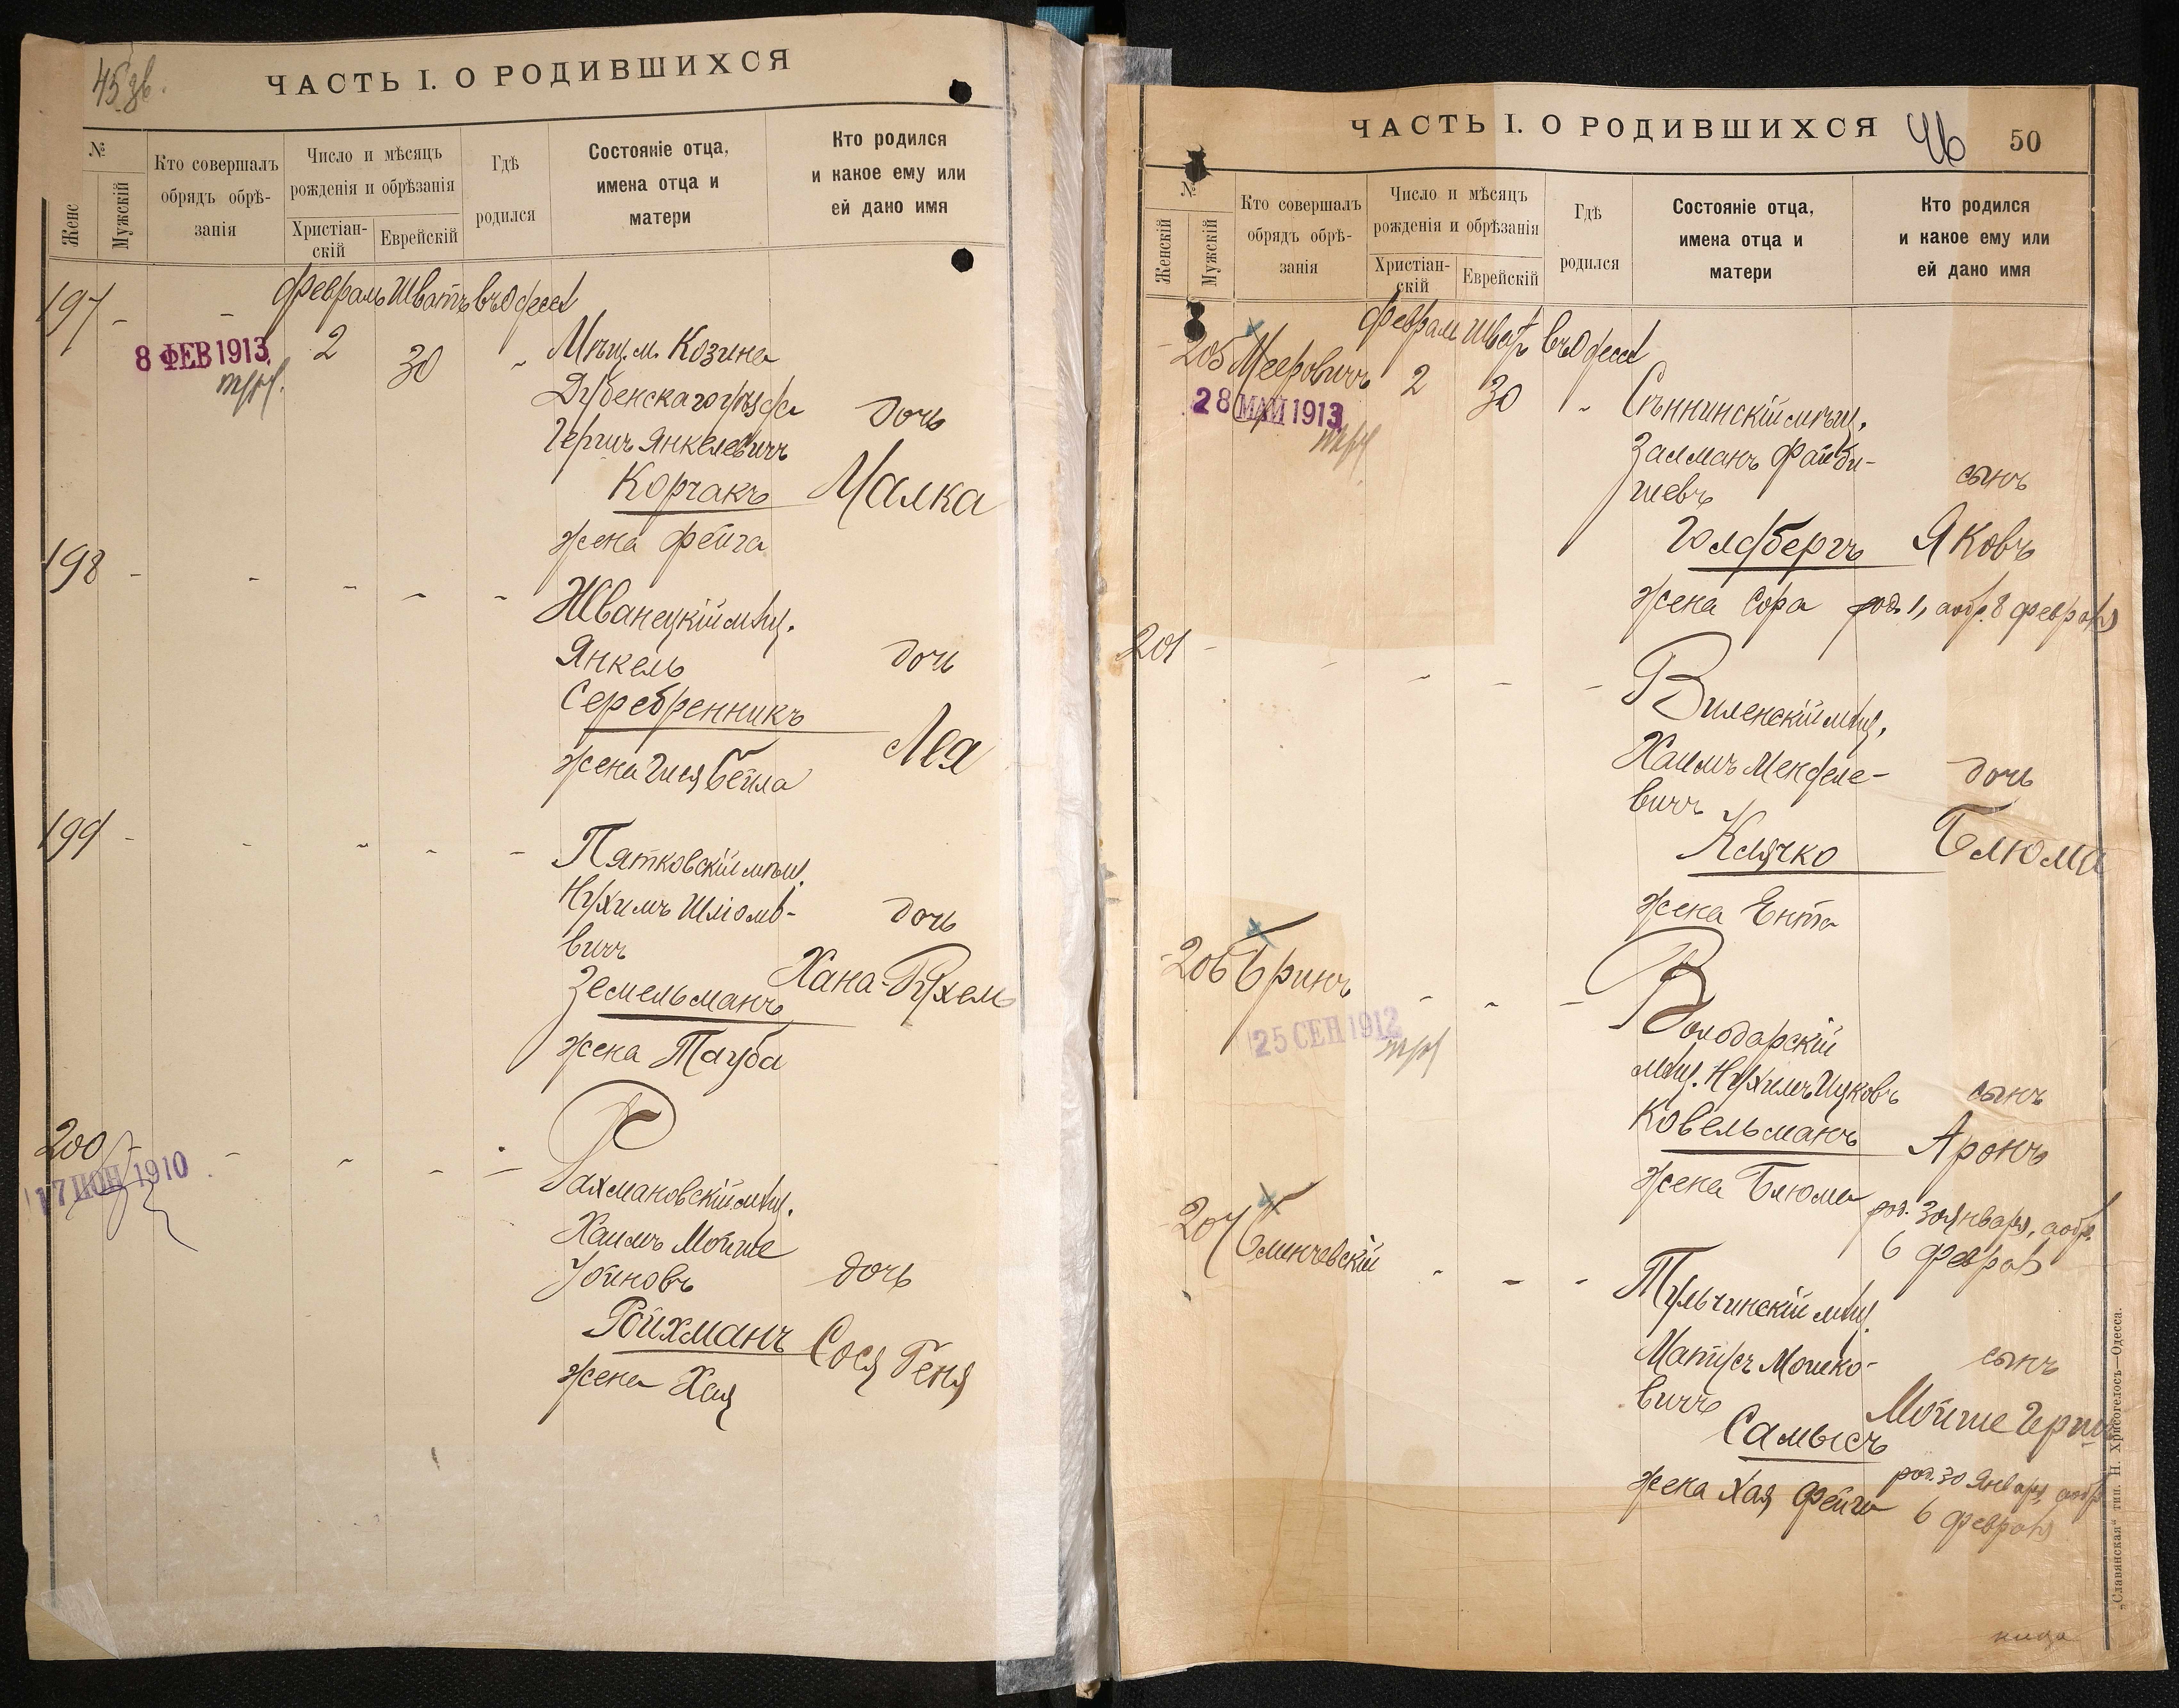 45 зв.
ЧАСТЬ I. О РОДИВШИХСЯ
№
Женс
Мужскій
Кто совершалъ
обрядъ обрѣ-
занія
Число и мѣсяцъ
рожденія и обрѣзанія
Христіан-
скій
Еврейскій
Гдѣ
родился
Состояніе отца,
имена отца и
матери
Кто родился
и какое ему или
ей дано имя
197 - - Февраль Шватъ въ Одессѣ
8 ФЕВ 1913 2 30 Мѣщ. м. Козина
Дубенскаго уѣзда
Гершъ Янкелевичъ дочь
Корчакъ Малка
жена Фейга
198 - - - - -
Жванецкій мѣщ.
Янкель дочь
Серебренникъ
Лея
жена Гися Бейла
199 - - - - -
Пятковскій мѣщ.
Нухимъ Шліомо-
вичъ дочь
Земельманъ Хана-Рухель
жена Тауба
200 - - - - -
17 ІЮН 1910
Рахмановскій мѣщ.
Хаимъ Мойше
дочь
Ройхманъ Сося Геня
жена Хая
ЧАСТЬ I. О РОДИВШИХСЯ 46 50
№
Женскій
Мужскій
Кто совершалъ
обрядъ обрѣ-
занія
Число и мѣсяцъ
рожденія и обрѣзанія
Христіан-
скій
Еврейскій
Гдѣ
родился
Состояніе отца,
имена отца и
матери
Кто родился
и какое ему или
ей дано имя
Февраль Шватъ въ Одессѣ
205 Мееровичъ 2 30
28 МАЙ 1913
Сѣннинскій мѣщ.
Залманъ Файби-
шевъ сынъ
Голдбергъ Яковъ
жена Сора род. 1, а обр. 8 февраля
201 - - - - -
Виленскій мѣщ.
Хаимъ Менделе-
вичъ дочь
Клячко Блюма
жена Ента
206 Бринъ - - -
25 СЕН 1912
Володарскій
мѣщ. Нухимъ Ицковъ сынъ
Ковельманъ Аронъ
жена Блюма род. 30 января, а обр.
6 февраля
207 Блинчевскій - - -
Тульчинскій мѣщ.
Матусъ Мошко-
вичъ сынъ
Самысъ Мойше Гершъ
жена Хая Фейга род. 30 января, а обр
6 февраля
„Славянская“ тип. Н. Хрисогелосъ—Одесса.